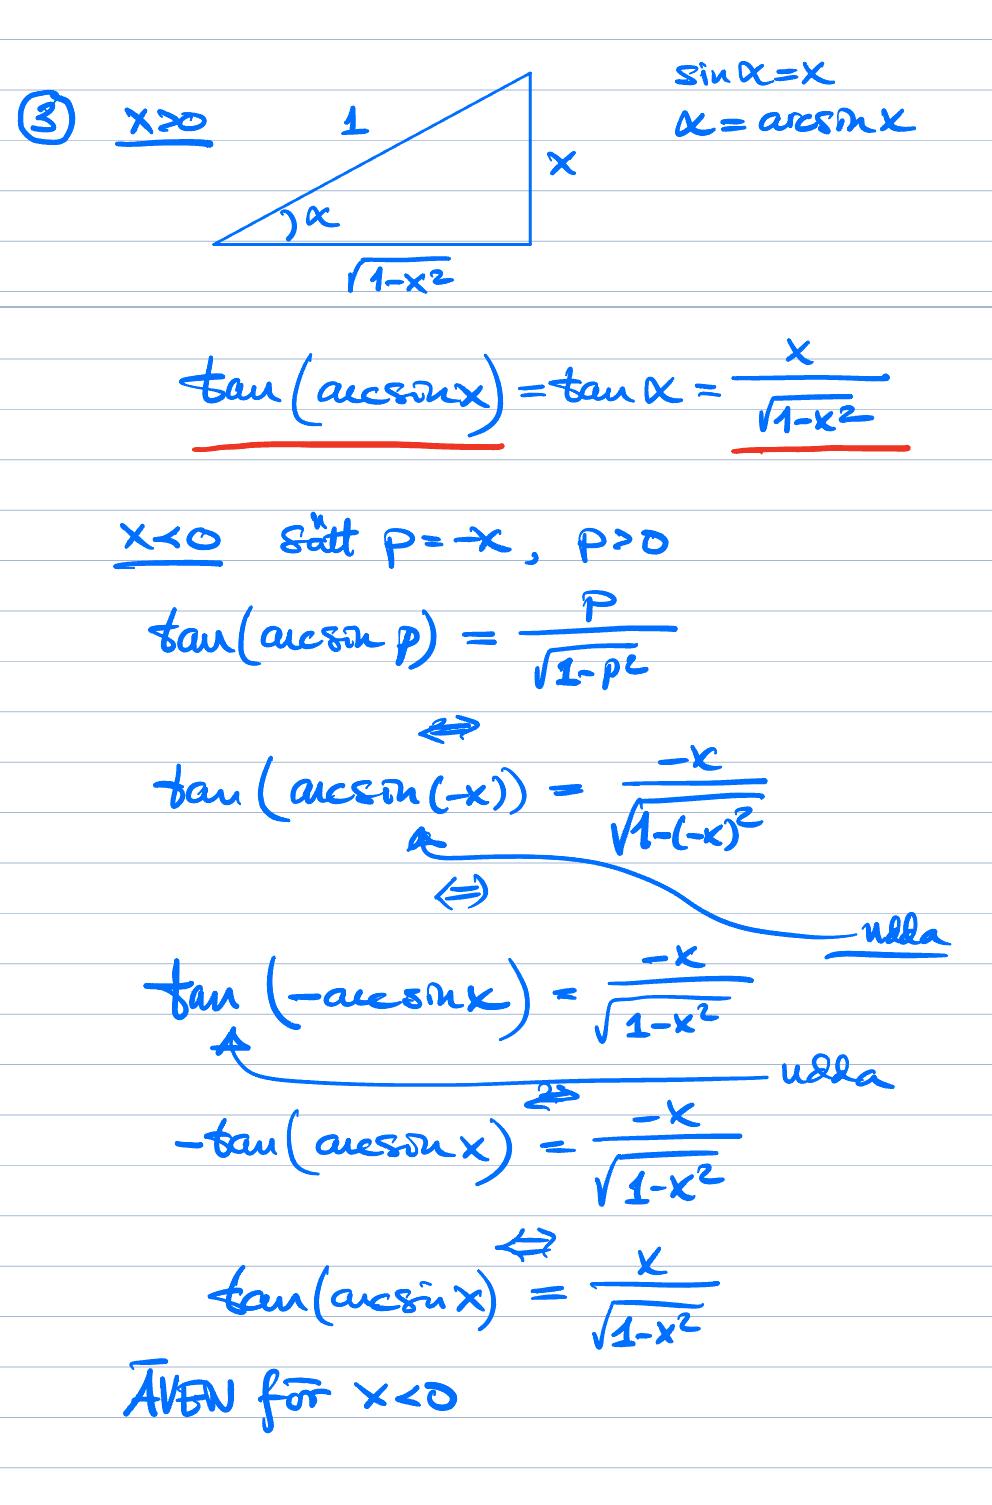 ③ x>0 1 x α √(1-x²) sin α = x
α = arcsin x
tan(arcsin x) = tan α = x/√(1-x²)
x<0 sätt p = -x, p>0
tan(arcsin p) = p/√(1-p²)
⇔
tan(arcsin(-x)) = -x/√(1-(-x)²)
⇔
udda
tan(-arcsin x) = -x/√(1-x²)
udda
⇔
-tan(arcsin x) = -x/√(1-x²)
⇔
tan(arcsin x) = x/√(1-x²)
ÄVEN för x<0